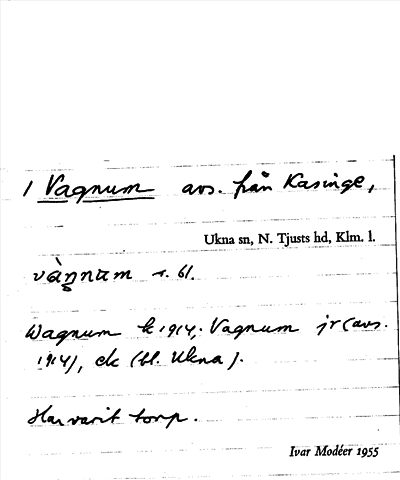 1 Vagnum avs. från Kasinge,
Ukna sn, N. Tjusts hd, Klm. l.
s. 61.
Wagnum k 1914; Vagnum jr (avs.
1914), ek (bl. Ukna).
Har varit torp.
Ivar Modéer 1955